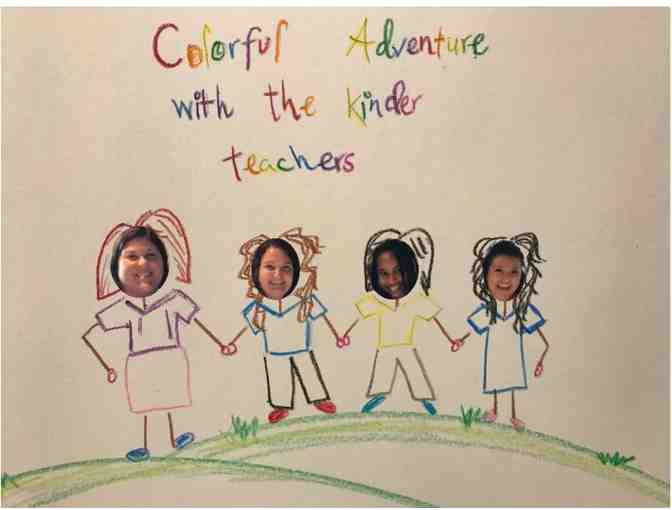 Colorful Adventure
with the kinder
teachers